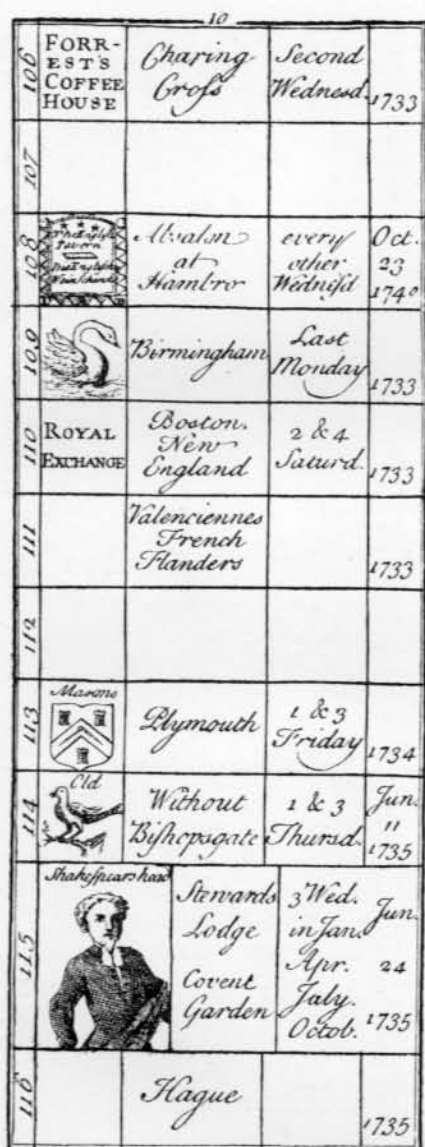 10
106
FORR-
EST'S
COFFEE
HOUSE
Charing
Cross
Second
Wednesd.
1733
107
108
The English
Tavern
Das Englische
Wein Schenck
Absalm
at
Hambro
every
other
Wednesd
Oct.
23
1740
109
Birmingham
Last
Monday
1733
110
ROYAL
EXCHANGE
Boston.
New
England
2 & 4
Saturd.
1733
111
Valenciennes
French
Flanders
1733
112
113
Masons
Plymouth
1 & 3
Friday
1734
114
Old
Without
Bishopsgate
1 & 3
Thursd.
Jun.
11
1735
115
Shakespears head
Stewards
Lodge
Covent
Garden
3 Wed.
in Jan.
Apr.
July.
Octob.
Jun.
24
1735
116
Hague
1735